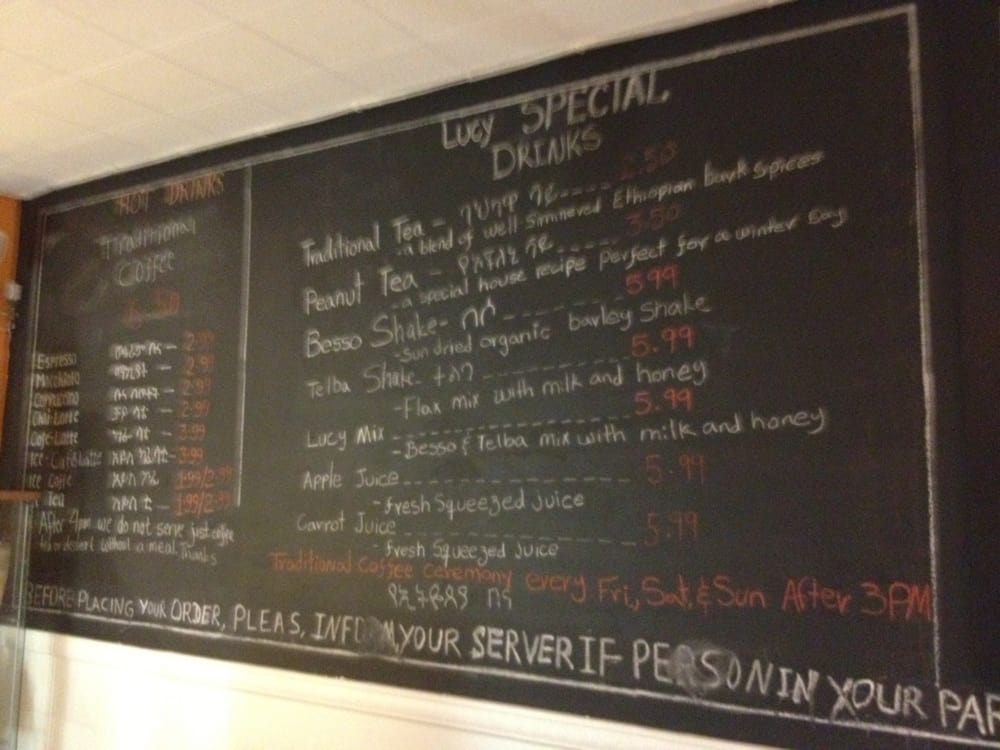 HOT DRINKS
Traditional
Coffee
Espresso 2.99
Macchiato 2.99
Cappuccino 2.99
Chai-Latte 2.99
Cafe-Latte 3.99
Ice-Cafe Latte 3.99
Ice Coffe 1.99/2.99
Tea 1.99/2.99
After 4pm we do not serve just coffee
tea or dessert without a meal. Thanks
Lucy SPECIAL
DRINKS
Traditional Tea - 2.50
- a blend of well-simmered Ethiopian bark spices
Peanut Tea - 3.50
- a special house recipe perfect for a winter say
Besso Shake - በሶ 5.99
- Sun dried organic barley shake
Telba Shake - ተልባ 5.99
- Flax mix with milk and honey
Lucy Mix 5.99
- Besso & Telba mix with milk and honey
Apple Juice 5.99
- fresh Squeezed juice
Carrot Juice 5.99
- fresh Squeezed juice
Traditional Coffee ceremony every Fri, Sat, & Sun After 3PM
የኢትዮጵያ ቡና
BEFORE PLACING YOUR ORDER, PLEAS, INFORM YOUR SERVER IF PERSON IN YOUR PAR